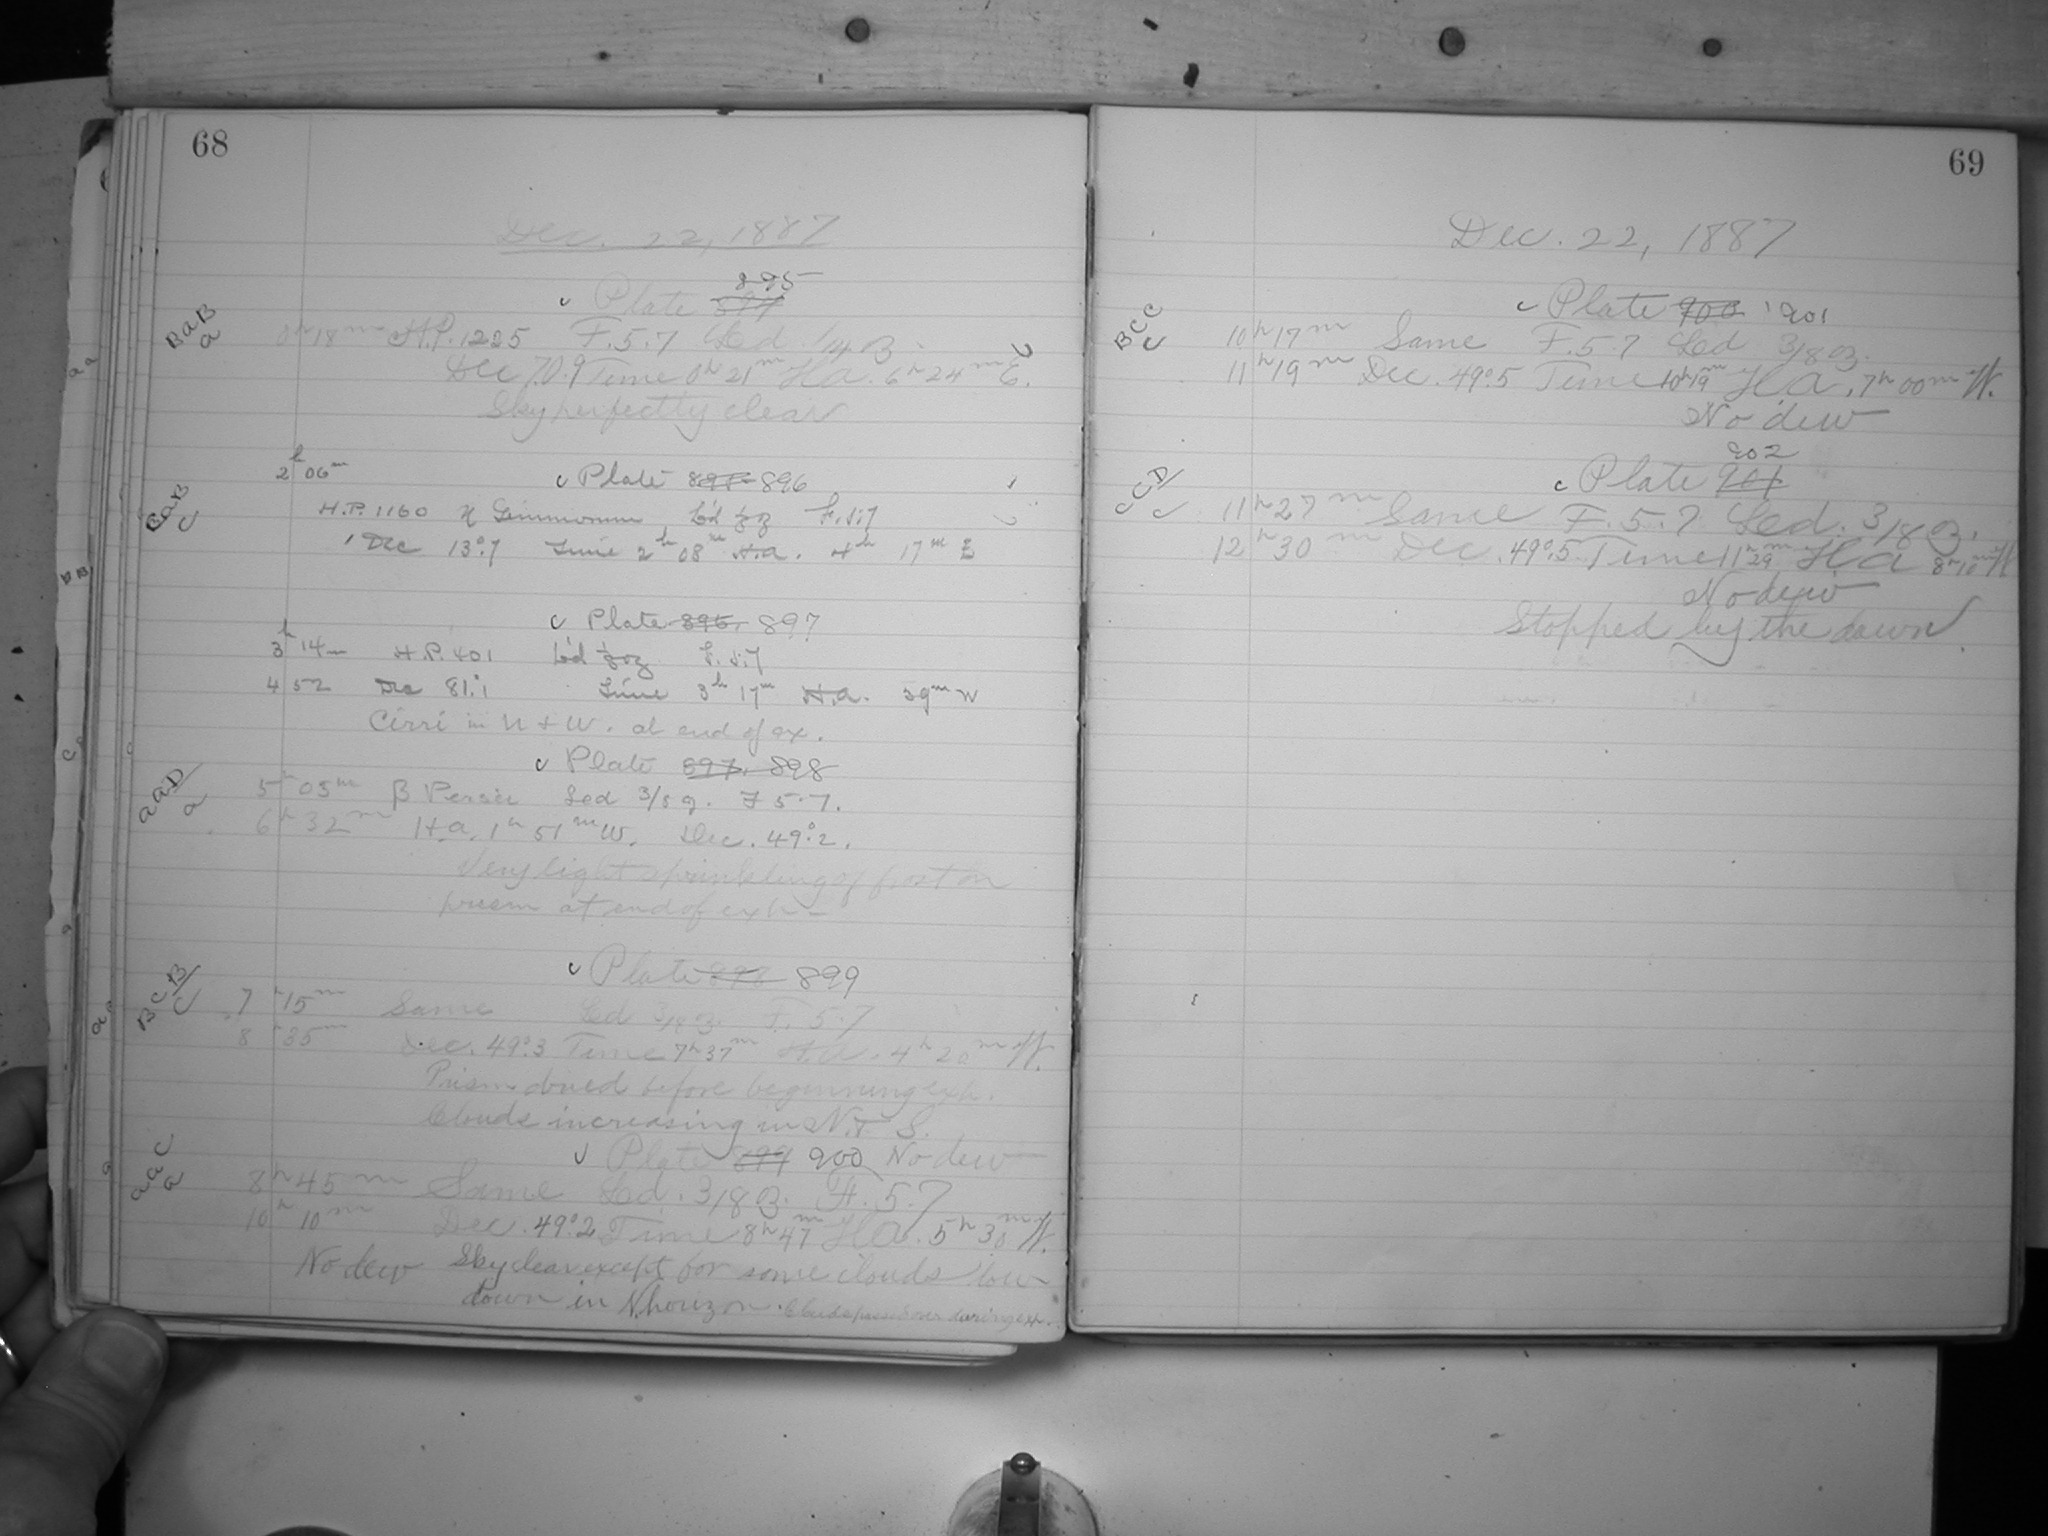 68
Dec. 22, 1887
895
Plate 894
BaB
a
0h 18m H.P. 1225 F. 5.7 Led 1/4 B
Dec 70.9 Time 0h 21m Ha. 6h 24m E.
Sky perfectly clear
2h 06m Plate 896
BaB
C
H.P. 1160 F. 5.7
Dec 13°.7 Time 2h 08m H.a. 4h 17m E
Plate 897
3h 14m H.P. 401 F. 5.7
4 52 Dec 81°.1 Time 3h 17m H.a. 59m W
Cirri in N + W. at end of ex.
Plate 897. 898
aaD
a
5h 05m β Persei Led 3/8 F 5.7.
6h 32m H.a. 1h 51m W. Dec. 49°.2.
Very light sprinkling of frost on
prism at end of exh.
Plate 898 899
BCB
C
7h 15m Same Led 3/8 oz. F. 5.7
8 35 Dec. 49°.3 Time 7h 37m H.a. 4h 20m W.
Prism dried before beginning exh.
Clouds increasing in N. + S.
Plate 899 900 No dew
aaC
a
8h 45m Same Led. 3/8 oz. F. 5.7
10h 10m Dec. 49°.2 Time 8h 47m Ha. 5h 30m W.
No dew Sky clear except for some clouds low
down in N. horizon. Clouds passed over during exh.
69
Dec. 22, 1887
Plate 900 901
BCC
C
10h 17m Same F. 5.7 Led 3/8 oz.
11h 19m Dec. 49°.5 Time 10h 19m Ha. 7h 00m W.
No dew
902
Plate 901
CCD
C
11h 27m Same F. 5.7 Led. 3/8 oz.
12h 30m Dec. 49°.5 Time 11h 29m Ha 8h 10m W
No dew
Stopped by the dawn